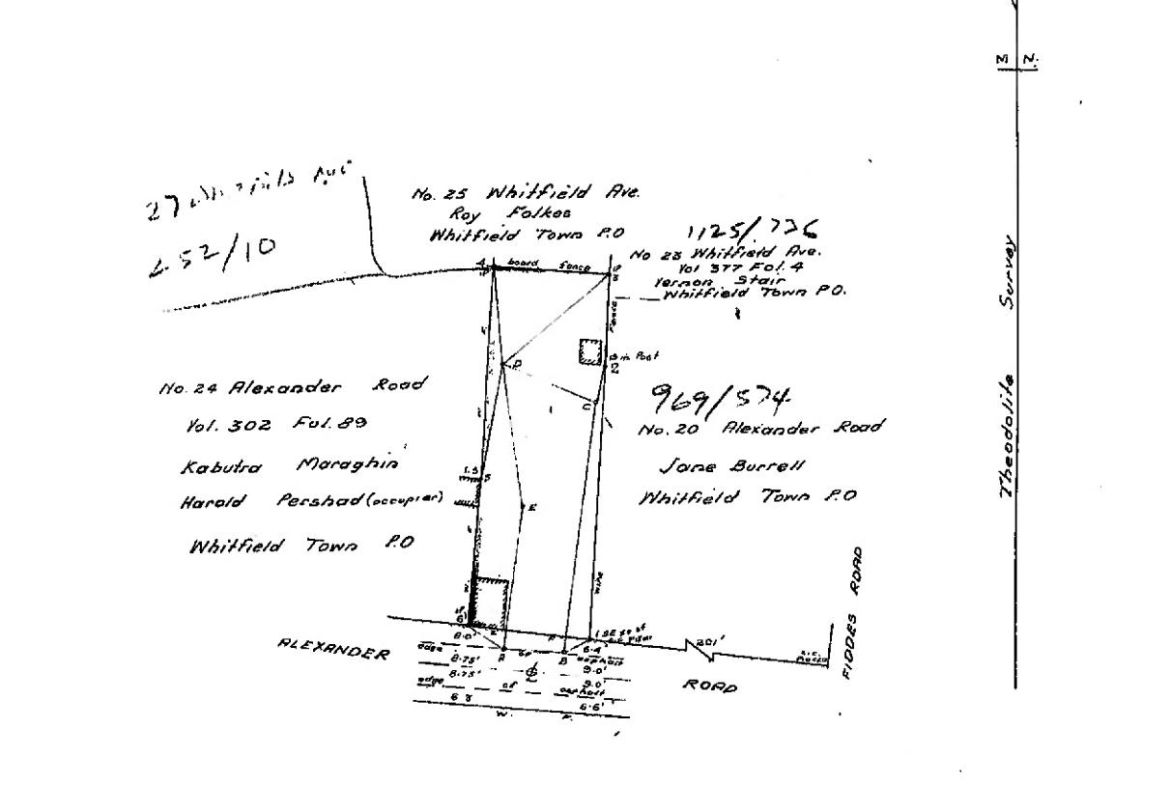 No. 25 Whitfield Ave.
Roy Folkes
Whitfield Town P.O
27
252/10
1125/736
No 23 Whitfield Ave.
Vol 377 Fol. 4
Vernon Stair
Whitfield Town P.O.
4
board fence
3
fence
D
Post
2
C
No. 24 Alexander Road
Vol. 302 Fol. 89
Kabutra Maraghin
Harold Pershad (occupier)
Whitfield Town P.O
969/574
No. 20 Alexander Road
Jane Burrell
Whitfield Town P.O
1.5
5
E
wire
6
1
8.0'
6.4'
A
B
edge
asphalt
8.75'
9.0'
8.75'
9.0'
edge of asphalt
6.8
6.6'
W. F.
201'
ALEXANDER
ROAD
FIDDES ROAD
Theodolite Survey
N.